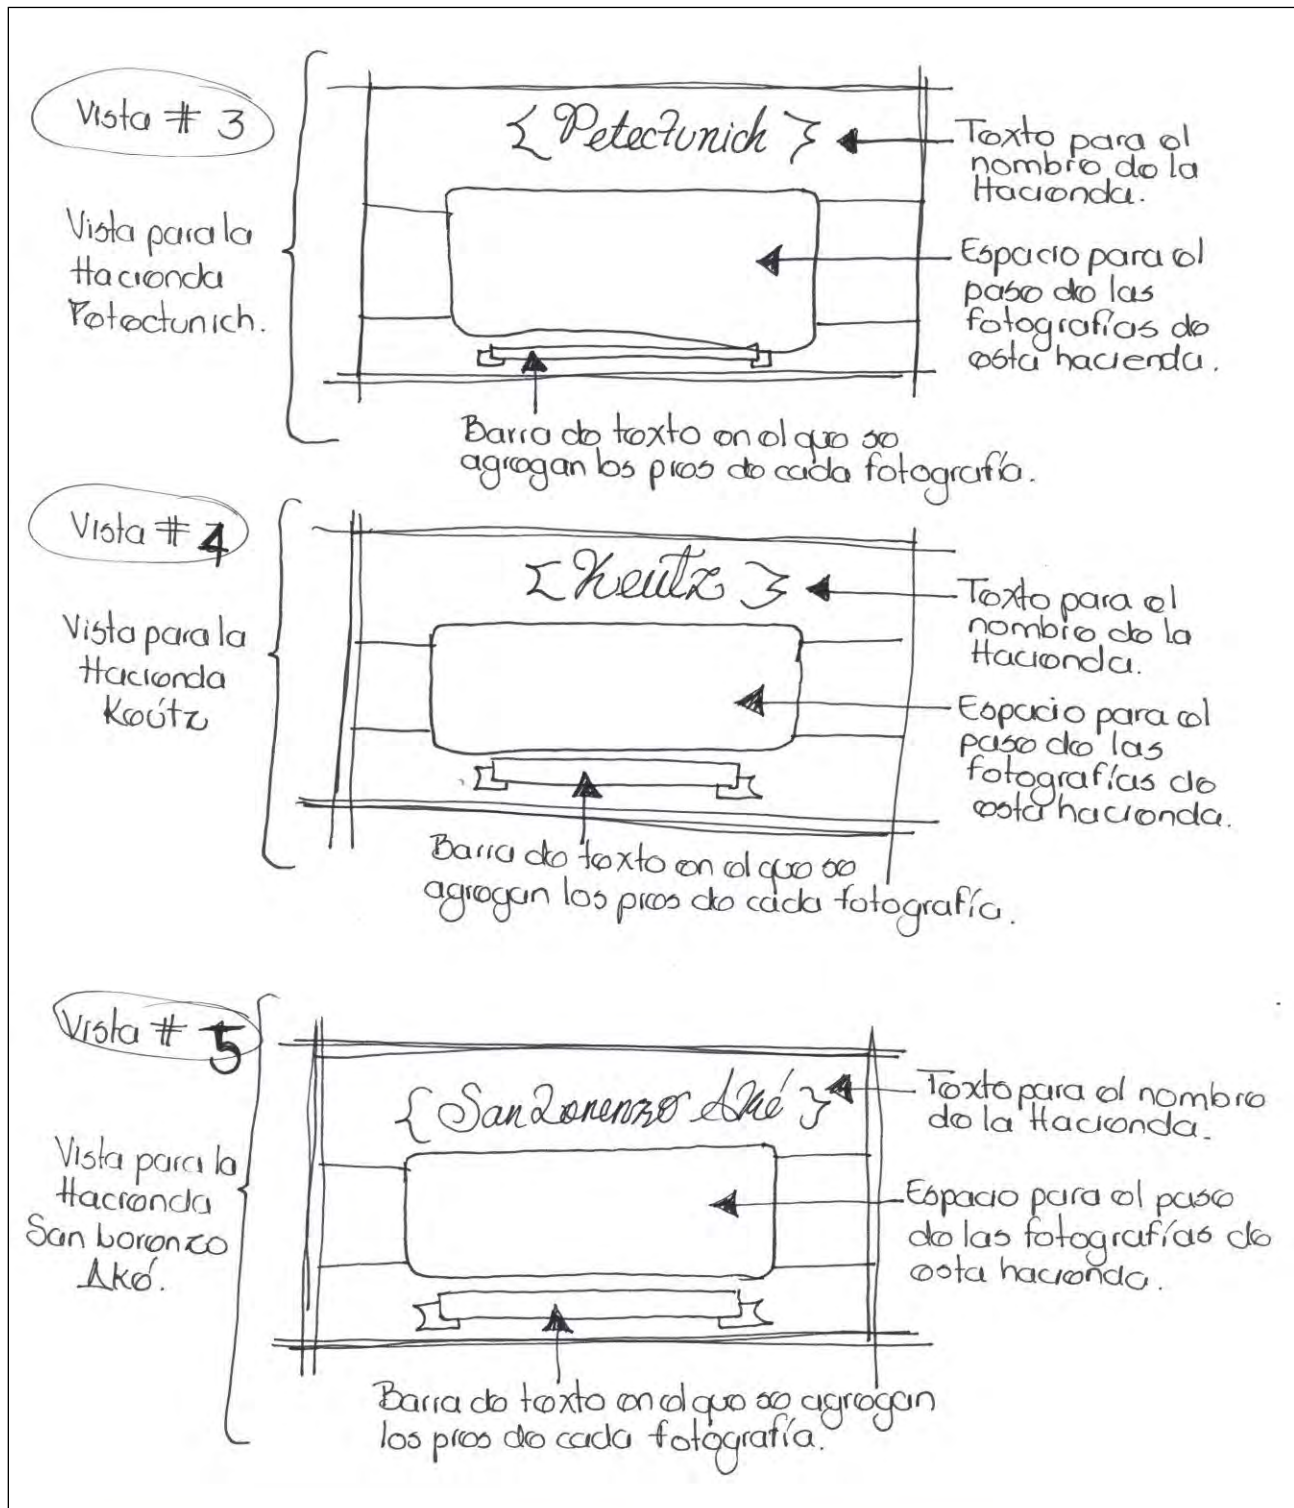 Vista # 3
Vista para la
Hacienda
Petectunich.
{ Petectunich }
Texto para el
nombre de la
Hacienda.
Espacio para el
paso de las
fotografías de
esta hacienda.
Barra de texto en el que se
agregan los pies de cada fotografía.
Vista # 4
Vista para la
Hacienda
Keútz
{ Keutz }
Texto para el
nombre de la
Hacienda.
Espacio para el
paso de las
fotografías de
esta hacienda.
Barra de texto en el que se
agregan los pies de cada fotografía.
Vista # 5
Vista para la
Hacienda
San Lorenzo
Aké.
{ San Lorenzo Aké }
Texto para el nombre
de la Hacienda.
Espacio para el paso
de las fotografías de
esta hacienda.
Barra de texto en el que se agregan
los pies de cada fotografía.